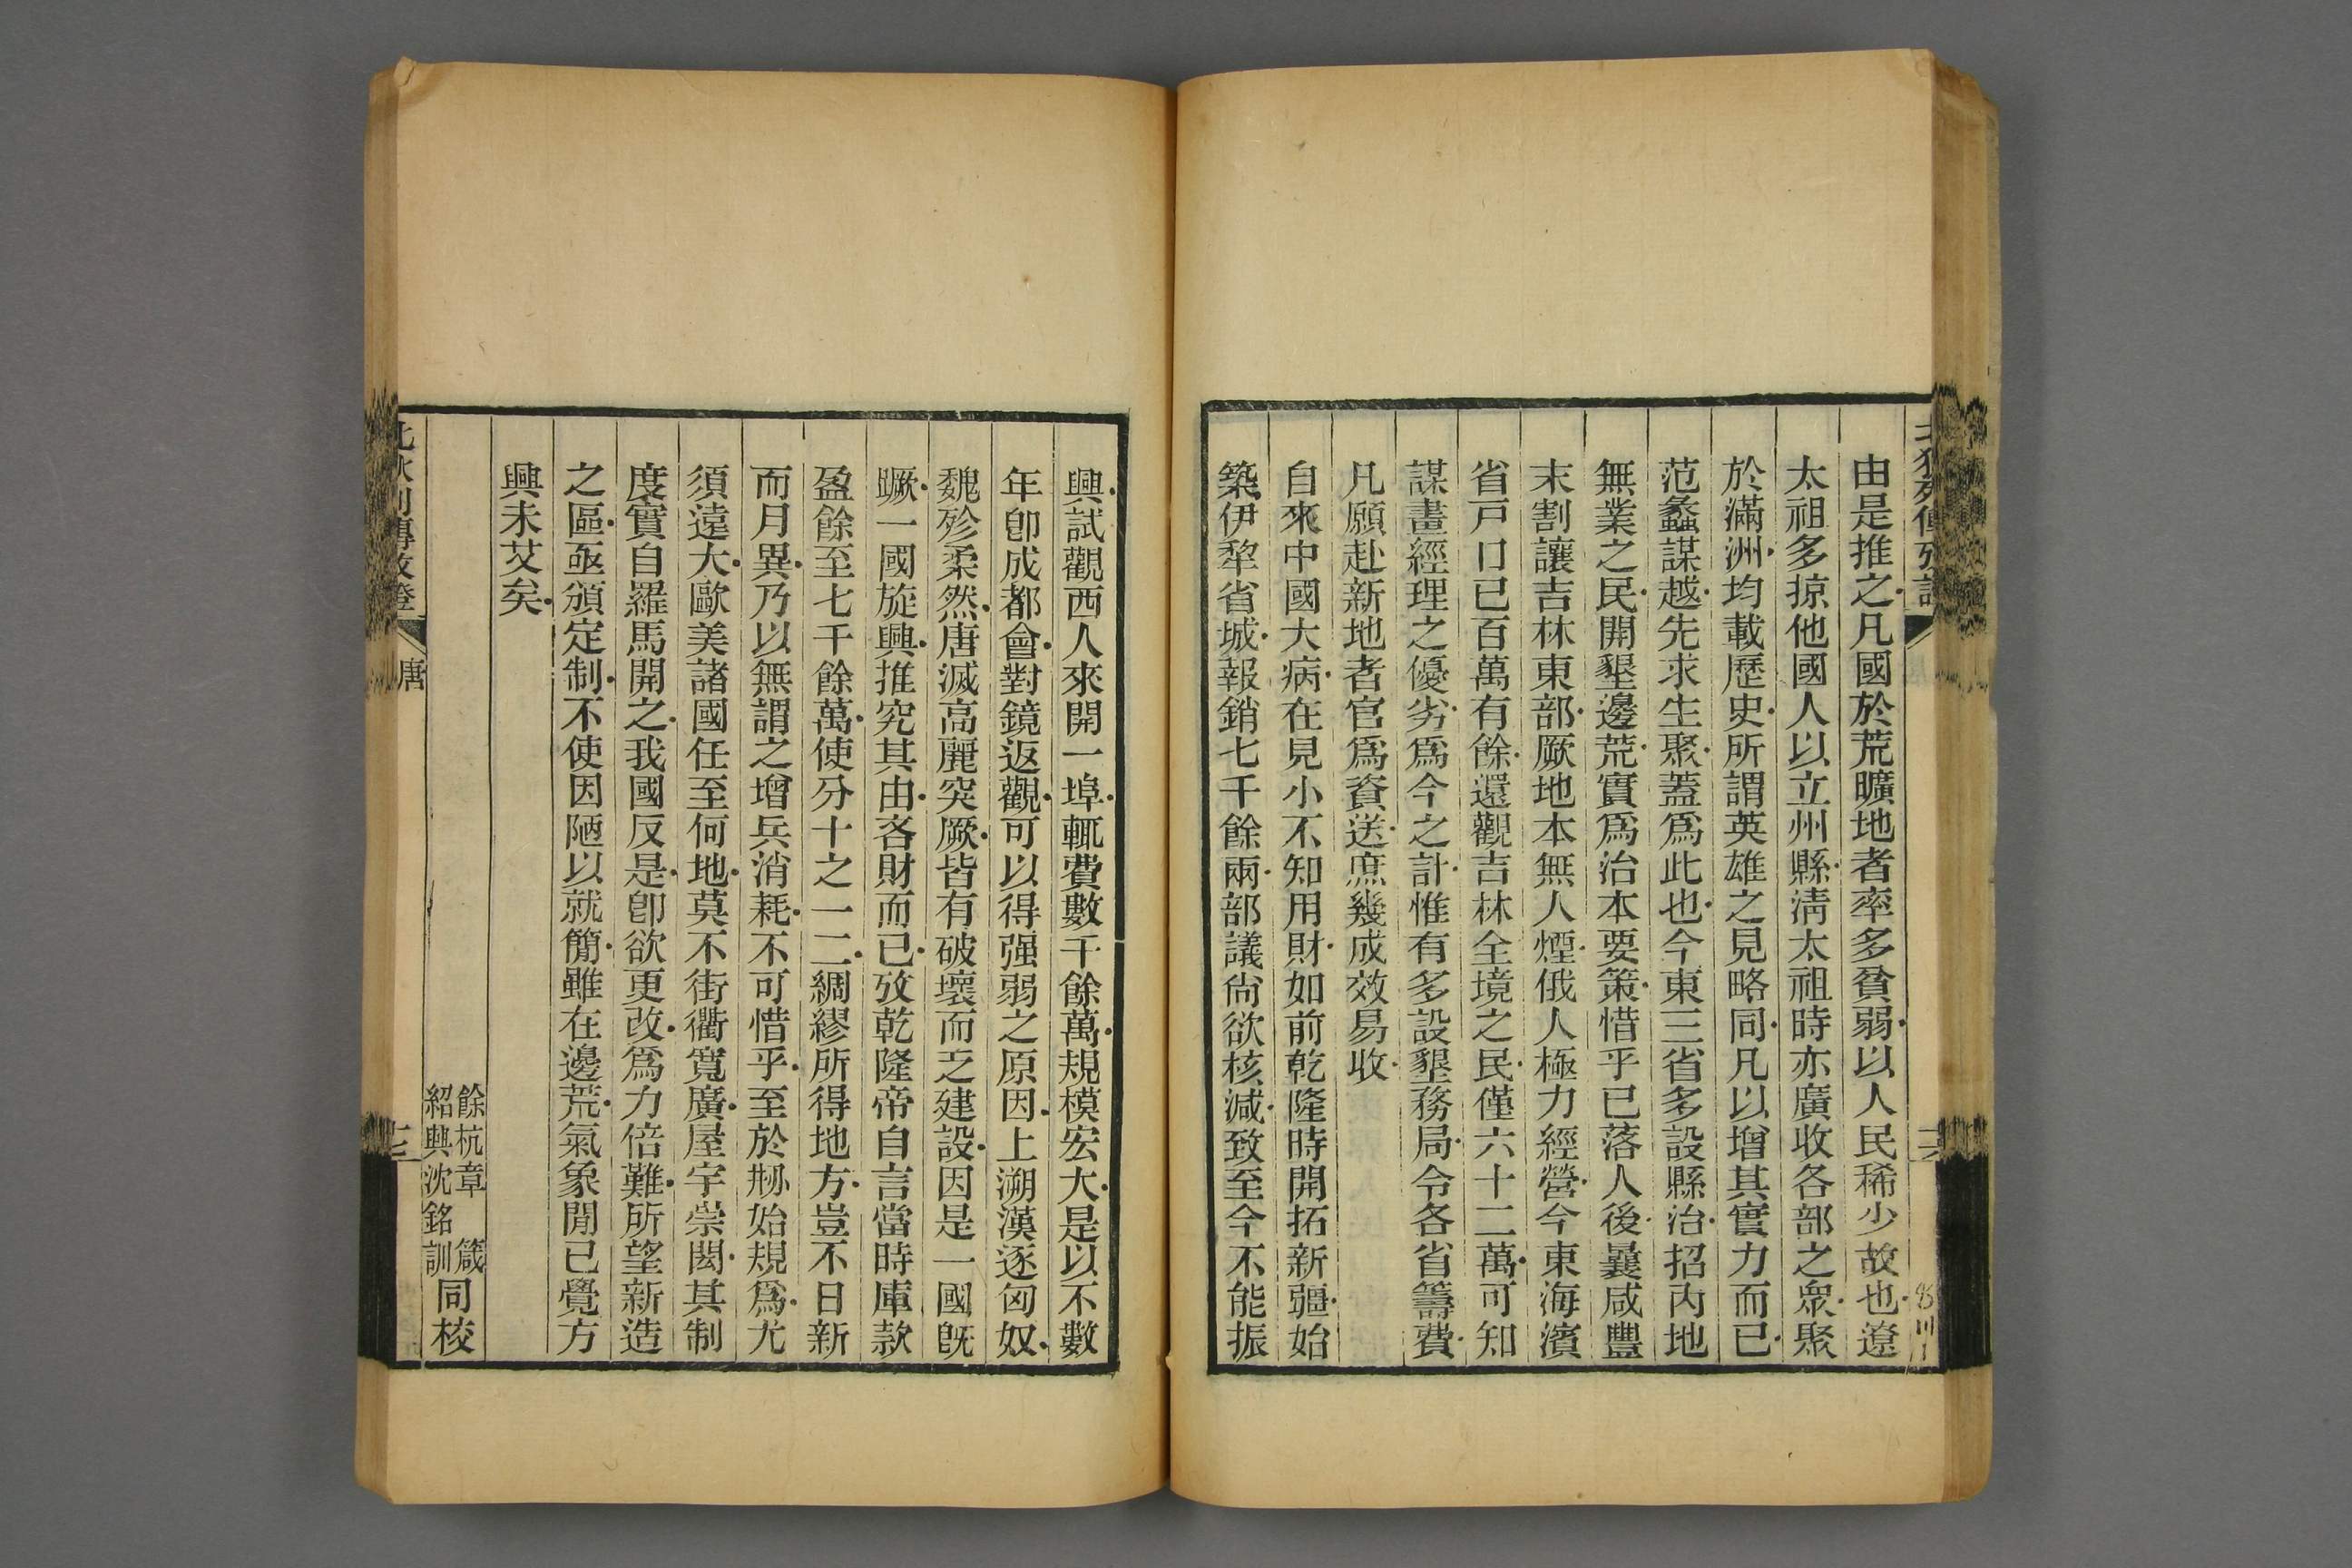 由是推之凡國於荒曠地者率多貧弱以人民稀少故也遼
太祖多掠他國人以立州縣清太祖時亦廣收各部之眾聚
於滿洲均載歷史所謂英雄之見略同凡以增其實力而已
范蠡謀越先求生聚蓋爲此也今東三省多設縣治招內地
無業之民開墾邊荒實爲治本要策惜乎已落人後曩咸豐
末割讓吉林東部厥地本無人煙俄人極力經營今東海濱
省戸口已百萬有餘還觀吉林全境之民僅六十二萬可知
謀畫經理之優劣爲今之計惟有多設墾務局令各省籌費
凡願赴新地者官爲資送庶幾成效易收
自來中國大病在見小不知用財如前乾隆時開拓新疆始
築伊犂省城報銷七千餘兩部議尙欲核減致至今不能振
興試觀西人來開一埠輒費數千餘萬規模宏大是以不數
年卽成都會對鏡返觀可以得强弱之原因上溯漢逐匈奴
魏殄柔然唐滅高麗突厥皆有破壞而乏建設因是一國旣
蹶一國旋興推究其由吝財而已攷乾隆帝自言當時庫款
盈餘至七千餘萬使分十之一二綢繆所得地方豈不日新
而月異乃以無謂之增兵消耗不可惜乎至於刱始規爲尤
須遠大歐美諸國任至何地莫不街衢寬廣屋宇崇閎其制
度實自羅馬開之我國反是卽欲更改爲力倍難所望新造
之區亟頒定制不使因陋以就簡雖在邊荒氣象閒已覺方
興未艾矣
餘杭章　箴
紹興沈銘訓
同校
唐